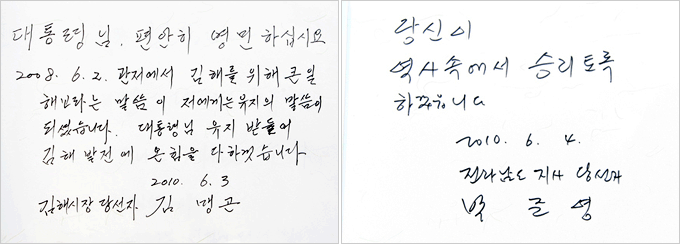 대통령님. 편안히 영면하십시요
2008. 6. 2. 관저에서 김해를 위해 큰일
해고라는 말씀이 저에게는 유지의 말씀이
되셨습니다. 대통령님 유지 받들어
김해 발전에 온힘을 다하겠습니다
2010. 6. 3
김해시장 당선자 김맹곤
당신이
역사속에서 승리토록
하겠읍니다
2010. 6. 4.
전라남도지사 당선자
박준영